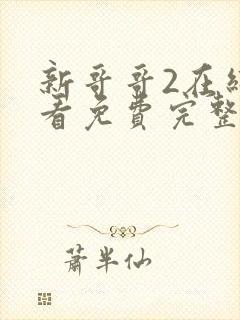 新哥哥2在线
看免费完整
萧半仙